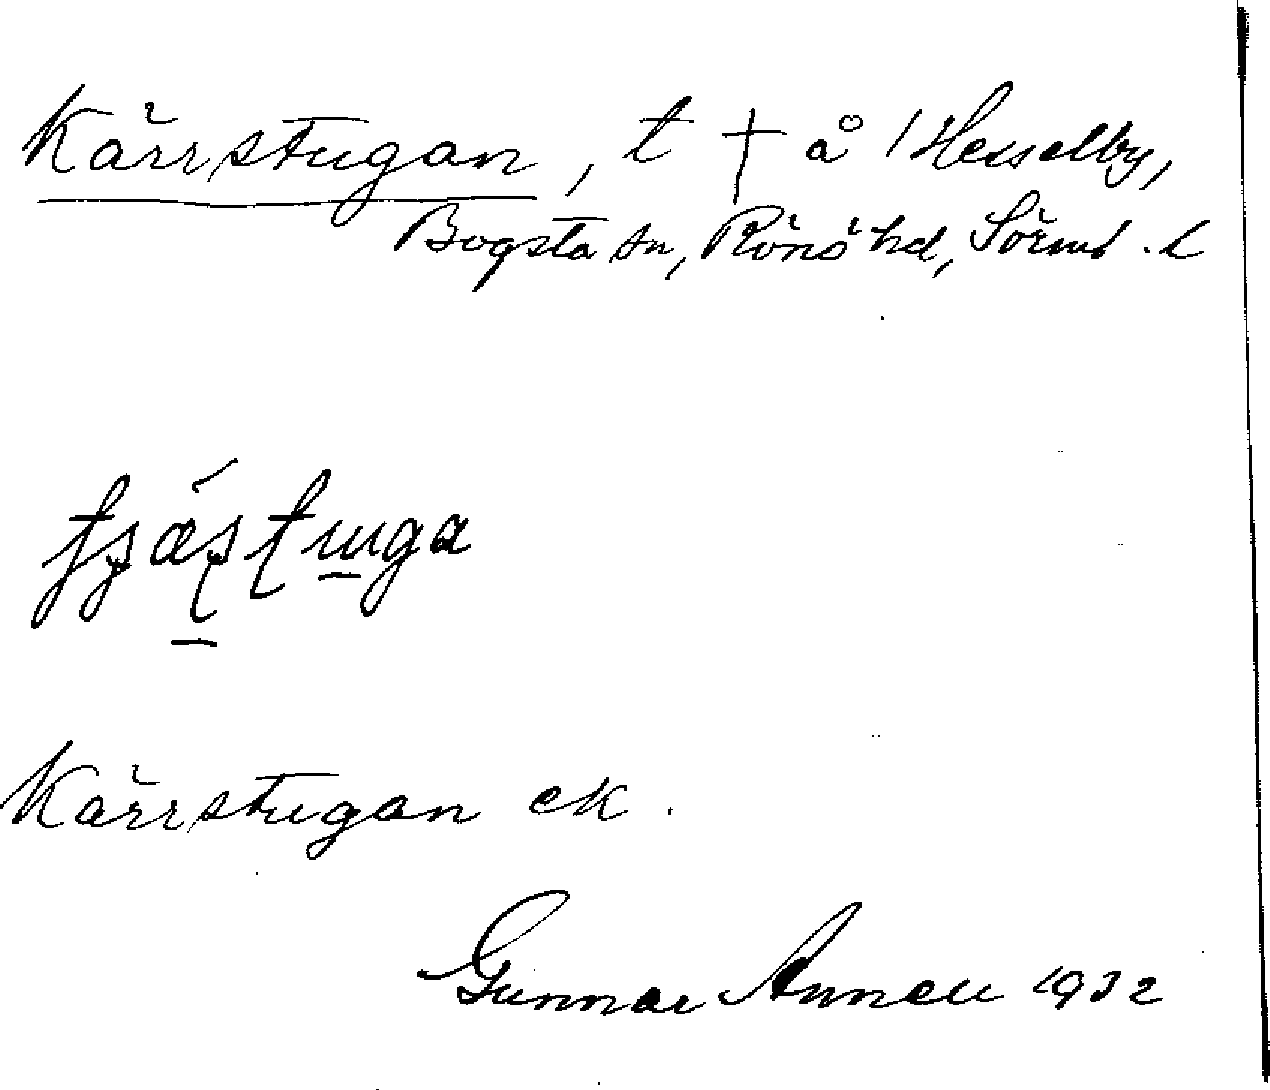 Kärrstugan, t † å / Hesselby,
Bogsta sn, Rönö hd, Sörml. l
Kärrstugan ek.
Gunnar Annell 1932